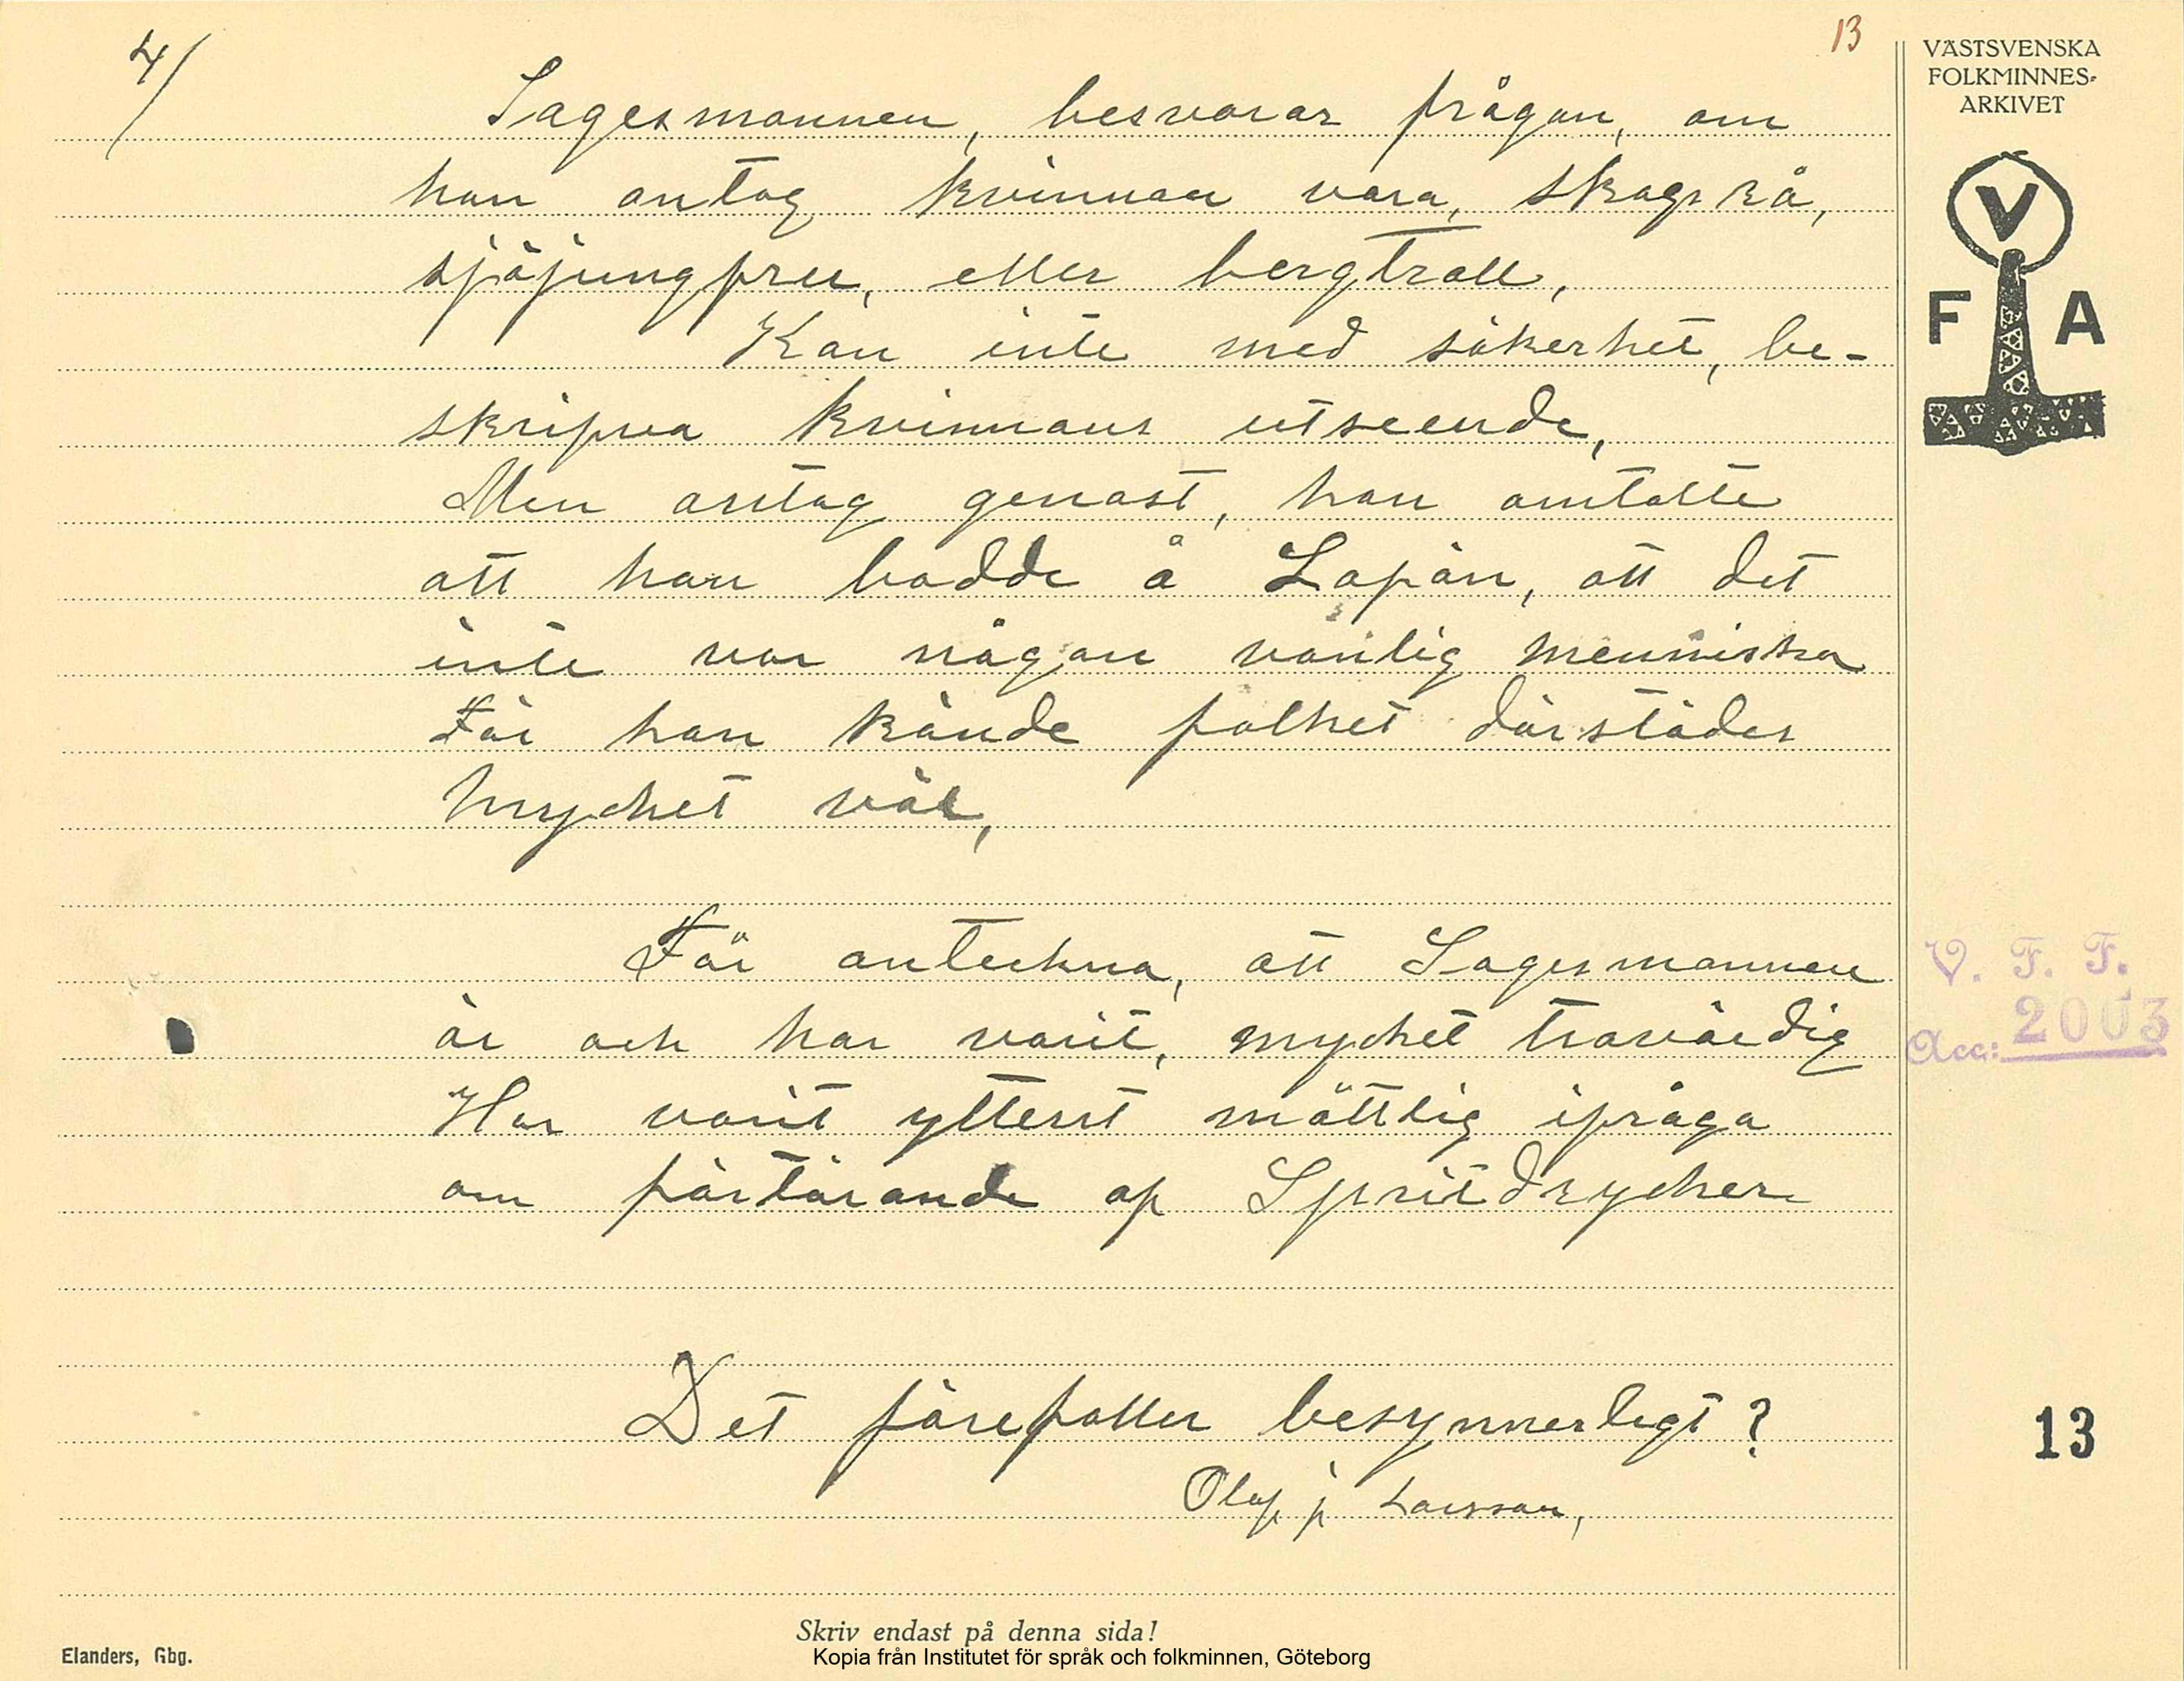 4/
13
VÄSTSVENSKA
FOLKMINNES-
ARKIVET
V
F A
Sagesmannen, besvarar frågan, om
han antog kvinnan vara, skogsrå,
sjöjungfru, eller bergtroll,
Kan inte med säkerhet, be-
skrifva kvinnans utseende,
Men antog genast, hon omtalte
att hon bodde å Lofån, att det
inte var någon vanlig menniska
För han kände folket därstädes
mycket väl,
Får anteckna, att Sagesmannen
är och har varit, mycket trovärdig
Har varit ytterst måttlig ifråga
om förtärande af Spritdrycker
V. F. F.
Acc: 2003
Det förefaller besynnerligt?
13
Olof j Larsson,
Skriv endast på denna sida!
Elanders, Gbg.
Kopia från Institutet för språk och folkminnen, Göteborg